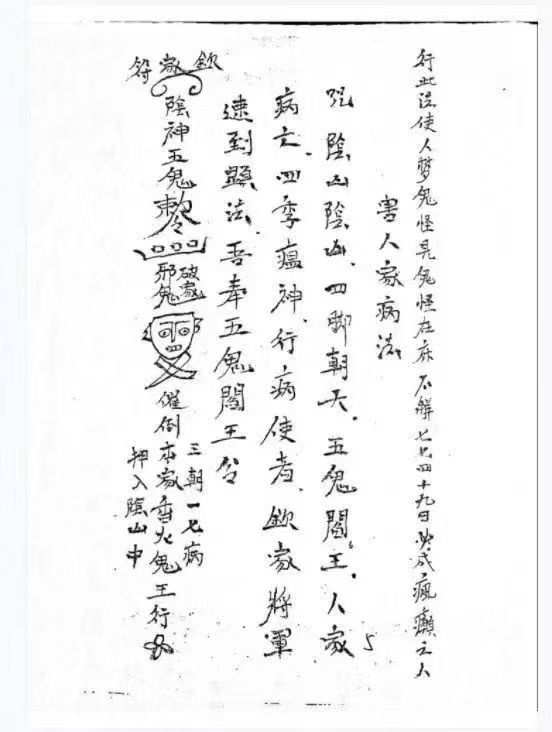 行此法使人梦鬼怪見鬼怪在床不解七七四十九日必成瘋癲之人
害人家病法
咒陰山陰山四脚朝天五鬼閻王人家
病亡四季瘟神行病使者欽家將軍
速到顕法吾奉五鬼閻王令
欽家符
陰神五鬼敕令
破家
邪鬼
催倒本家香火鬼王行
三朝一七病
押入陰山中
5